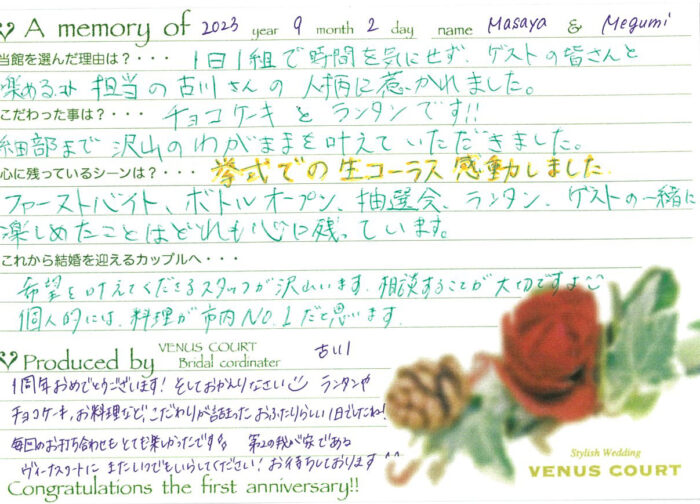 A memory of 2023 year 9 month 2 day name Masaya & Megumi
当館を選んだ理由は？・・・ 1日1組で時間を気にせず、ゲストの皆さんと
楽める 担当の古川さんの人柄に惹かれました。
こだわった事は？・・・ チョコケーキとランタンです!!
細部まで沢山のわがままを叶えていただきました。
心に残っているシーンは？・・・ 挙式での生コーラス感動しました
ファーストバイト、ボトルオープン、抽選会、ランタン、ゲストの一緒に
楽しめたことはどれも心に残っています。
これから結婚を迎えるカップルへ・・・
希望を叶えてくださるスタッフが沢山います。相談することが大切ですよ
個人的には、料理が市内NO.1だと思います。
Produced by VENUS COURT Bridal cordinater 古川
1周年おめでとうございます! そしておかえりなさい ランタンや
チョコケーキ、お料理など、こだわりが詰まったおふたりらしい1日でしたね!
毎回のお打ち合わせもとても楽しかったです!! 第2の我が家である
ヴィーナスコートにまたいつでもいらしてください! お待ちしております^^
Congratulations the first anniversary!!
Stylish Wedding
VENUS COURT